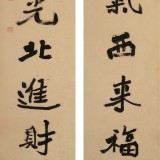 氣西来福
光北進財